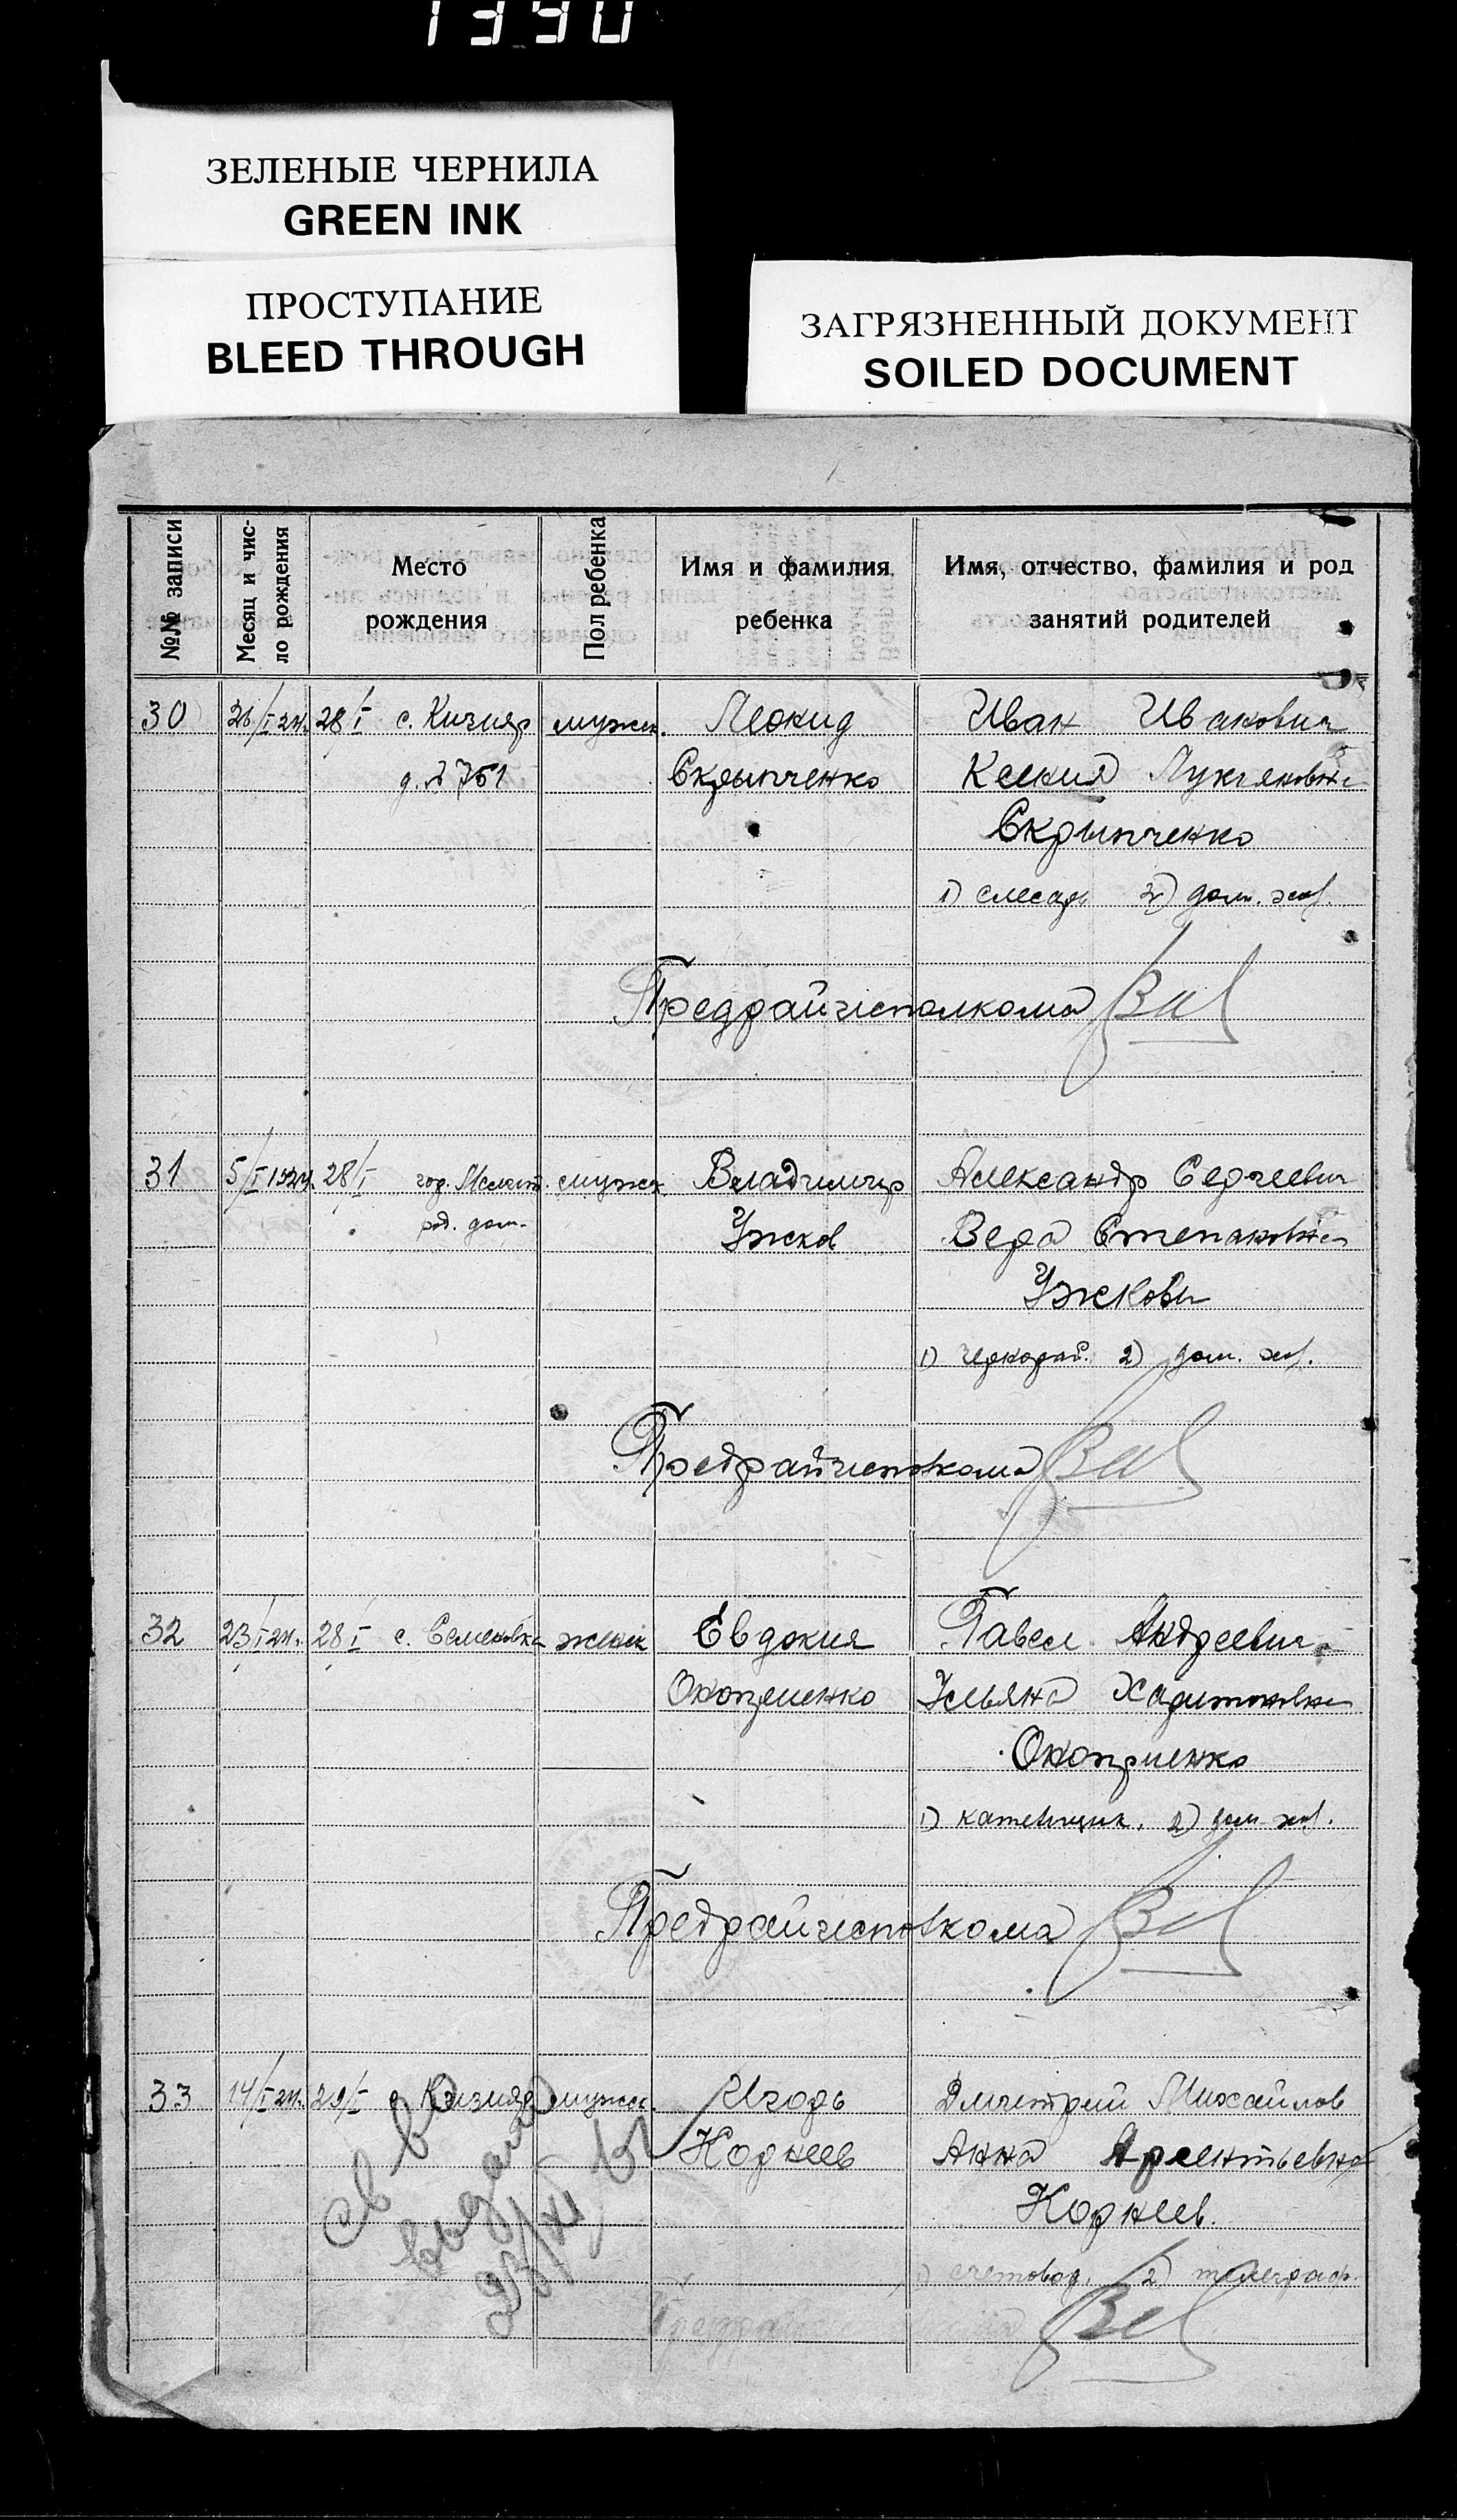 1390
ЗЕЛЕНЫЕ ЧЕРНИЛА
GREEN INK
ПРОСТУПАНИЕ
BLEED THROUGH
ЗАГРЯЗНЕННЫЙ ДОКУМЕНТ
SOILED DOCUMENT
№№ записи
Месяц и чис-
ло рождения
Место
рождения
Пол ребенка
Имя и фамилия
ребенка
Имя, отчество, фамилия и род
занятий родителей
30 26/I 24. 28/I с. Кизияр мужск. Леонид Иван Иванович
д. № 751 Скрыпченко Ксения Лукьяновна
Скрыпченко
1) слесарь 2) дом. хоз.
Предрайисполкома
31 5/I 1924. 28/I гор. Мелит. мужск Владимир Александр Сергеевич
род. дом. Ужков Вера Степановна
Ужковы
1) чернораб. 2) дом. хоз.
Предрайисполкома
32 23/I 24. 28/I с. Семеновка женск Евдокия Павел Андреевич
Оноприенко Ульяна Харитоновна
Оноприенко
1) 2) дом. хоз.
Предрайисполкома
33 14/I 24. 29/I с Кизияр мужск. Игорь Дмитрий Михайлов
Корнеев Анна Арсентьевна
Корнеев.
1) счетовод. 2) телеграф.
Предрай
св во
выдано
23/XI